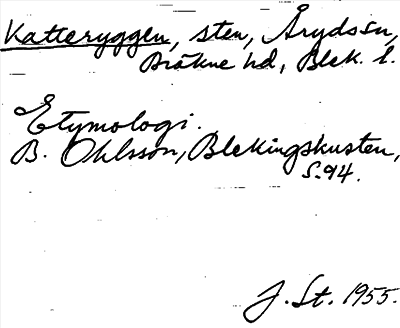 Katteryggen, sten, Årydsön,
Bräkne hd, Blek. l.
Etymologi.
B. Ohlsson, Blekingskusten,
S. 94.
J. St. 1955.